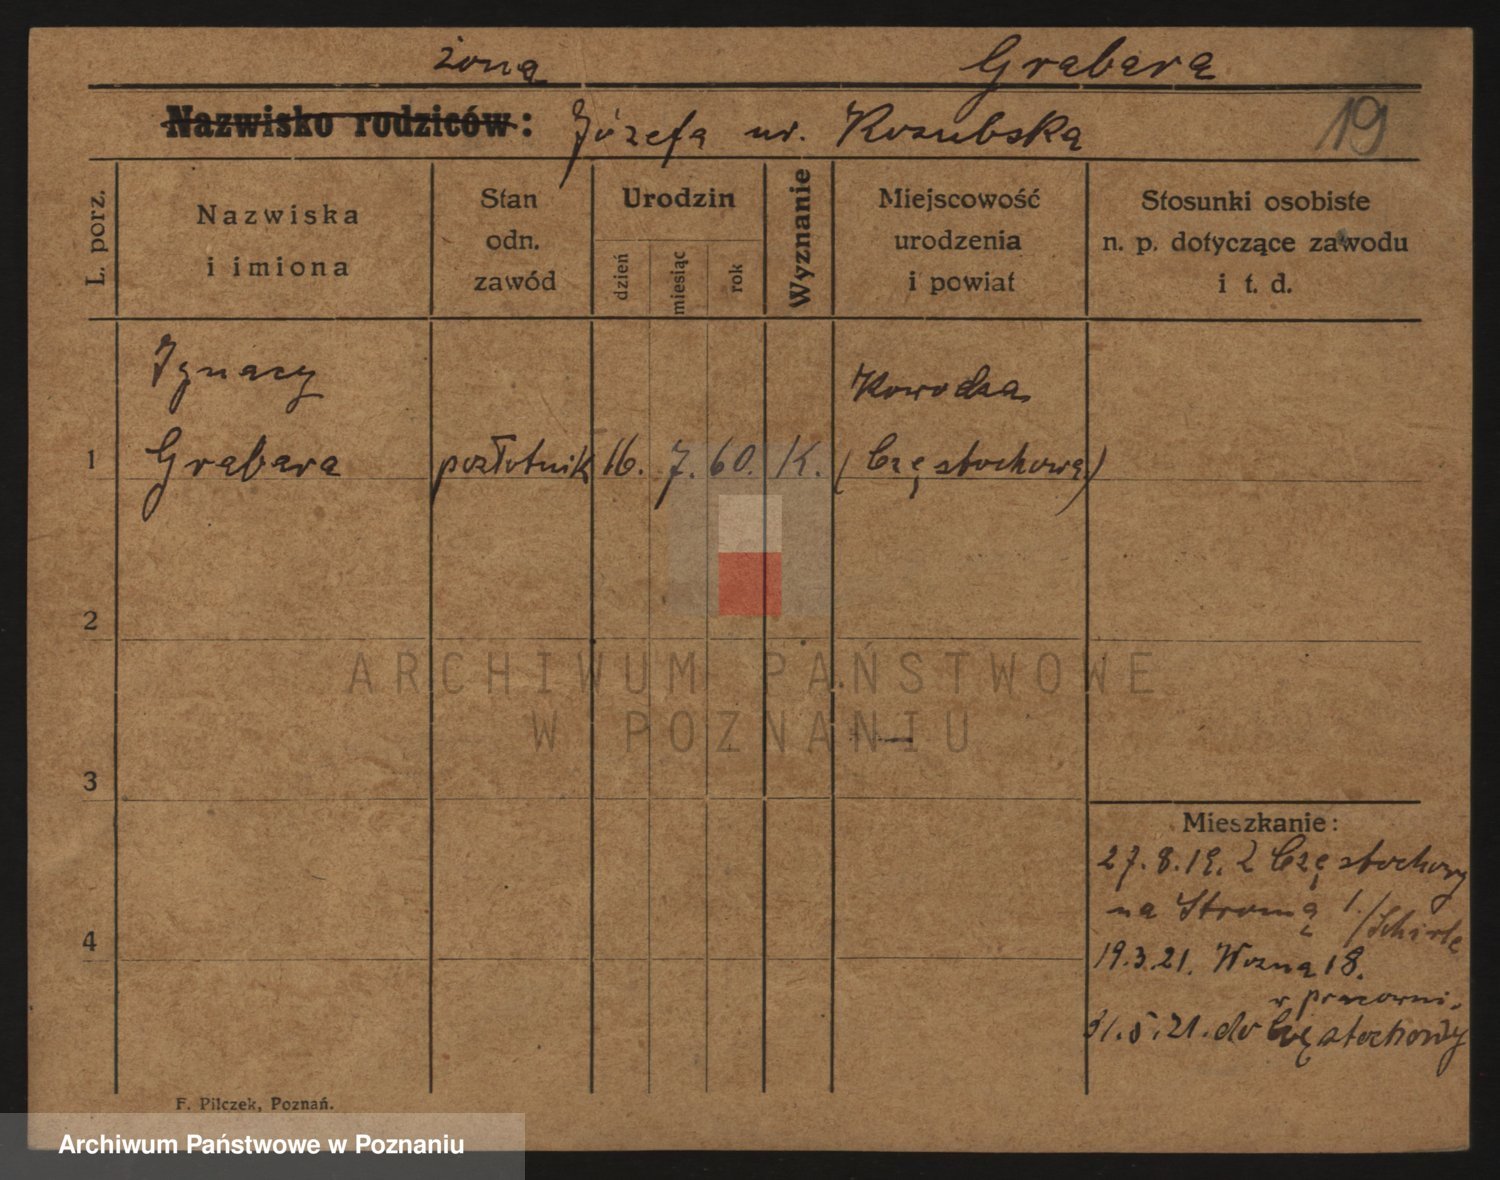 żona Grabara
Nazwisko rodziców: Józefa ur. Kozubska 19
L. porz.
Nazwiska
i imiona
Stan
odn.
zawód
Urodzin
dzień
miesiąc
rok
Wyznanie
Miejscowość
urodzenia
i powiat
Stosunki osobiste
n. p. dotyczące zawodu
i t. d.
Ignacy Kowodza
1 Grabara pozłotnik 16. 7. 60. K. (Częstochowa)
2
ARCHIWUM PAŃSTWOWE
W POZNANIU
3
4
Mieszkanie:
27.8.19. z Częstochowy
na Stromą 1./
19.3.21. Wozna 18.
w pracowni.
31.5.21. do Częstochowy
F. Pilczek, Poznań.
Archiwum Państwowe w Poznaniu